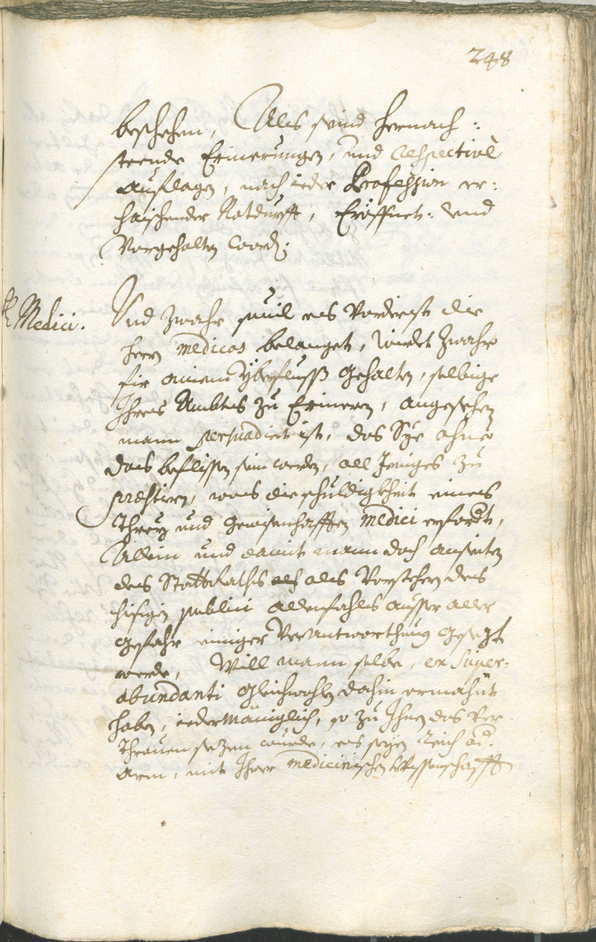 248
beschehen, Als seind hernach:
stehende Erinerungen, und respectivè
Auflagen, nach ieder Profession er:
haischender Notdurfft, Eröffnet: und
Vorgehalten word:
Medici.
Und zwahr souil es Vorderist die
herrn Medicos belanget, wirdet zwahr
für ainem Überfluss gehalten, selbige
Ihres Ambtes zu Erineren, angesehen
mann persuadiert ist, das Sye ohne
das beflissen sein werden, all Jeniges zu
præstiren, was die schuldigkheit eines
threu und gewissenhafften Medici erfordt,
Allein und damit mann doch anseiten
des Stattraths als Vorsteher des
hiesigen publici allenfahls ausser aller
gefahr einiger Verantworthung gesezt
werde, Will mann selbe, ex super:
abundanti gleichwohl dahin ermahnt
haben, iedermäniglich, so zu Ihnen das Ver:
thrauen sezen wurde, es seye Reich od:
Arm, mit Ihrer medicinischen Wissenschafft